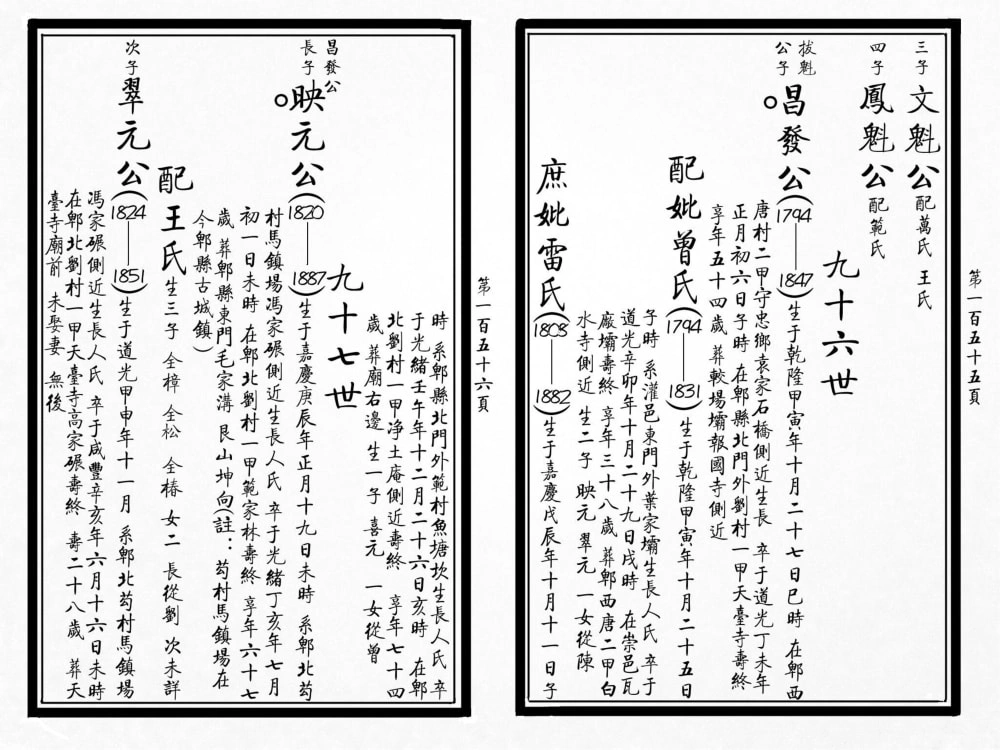 第一百五十五頁
三子 文魁公 配萬氏 王氏
四子 鳳魁公 配範氏
九十六世
拔魁
公子
昌發公(1794——1847)生于乾隆甲寅年十月二十七日巳時 在郫西
唐村二甲守忠鄉袁家石橋側近生長 卒于道光丁未年
正月初六日子時 在郫縣北門外劉村一甲天臺寺壽終
享年五十四歲 葬較場壩報國寺側近
配妣曾氏(1794——1831)生于乾隆甲寅年十月二十五日
子時 系灌邑東門外葉家壩生長人氏 卒于
道光辛卯年十月二十九日戌時 在崇邑瓦
廠壩壽終 享年三十八歲 葬郫西唐二甲白
水寺側近 生二子 映元 翠元 一女從陳
庶妣雷氏(1808——1882)生于嘉慶戊辰年十月十一日子
第一百五十六頁
時 系郫縣北門外範村魚塘坎生長人氏 卒
于光緒壬午年十二月二十六日亥時 在郫
北劉村一甲净土庵側近壽終 享年七十四
歲 葬廟右邊 生一子 喜元 一女從曾
九十七世
昌發公
長子
映元公(1820——1887)生于嘉慶庚辰年正月十九日未時 系郫北芶
村馬鎮場馮家碾側近生長人氏 卒于光緒丁亥年七月
初一日未時 在郫北劉村一甲範家林壽終 享年六十七
歲 葬郫縣東門毛家溝 艮山坤向(註：芶村馬鎮場在
今郫縣古城鎮)
配王氏 生三子 全樟 全松 全椿 女二 長從劉 次未詳
次子 翠元公(1824——1851)生于道光甲申年十一月 系郫北芶村馬鎮場
馮家碾側近生長人氏 卒于咸豐辛亥年六月十六日未時
在郫北劉村一甲天臺寺高家碾壽終 壽二十八歲 葬天
臺寺廟前 未娶妻 無後